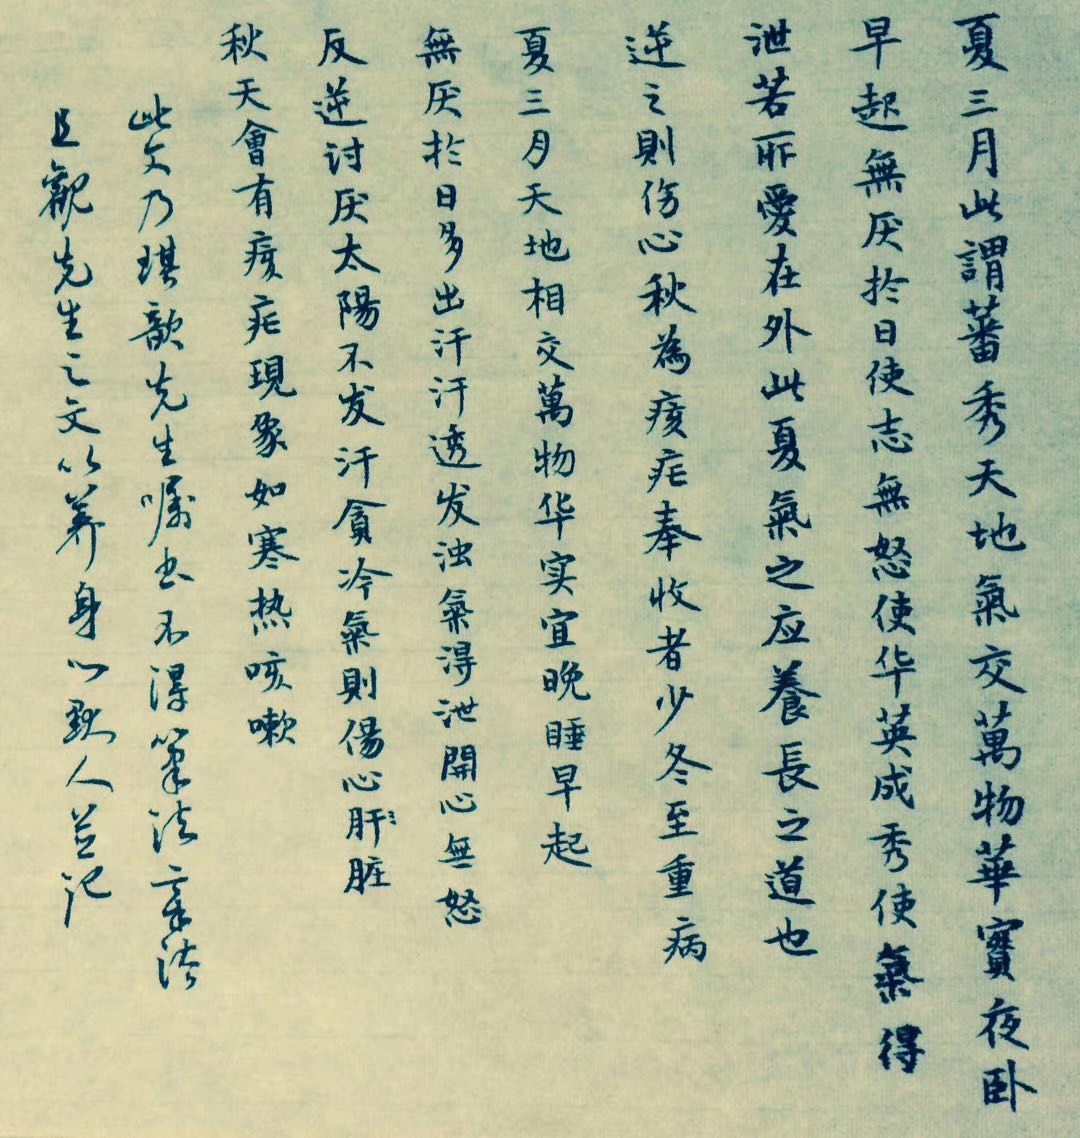 夏三月此謂蕃秀天地氣交萬物華實夜卧
早起無厌於日使志無怒使华英成秀使氣得
泄若所愛在外此夏氣之应養長之道也
逆之則伤心秋為痎疟奉收者少冬至重病
夏三月天地相交萬物华实宜晚睡早起
無厌於日多出汗汗透发浊氣得泄開心無怒
反逆讨厌太陽不发汗貪冷氣則傷心肝脏
秋天會有痎疟現象如寒热咳嗽
此文乃琪歆先生嘱书不得笔法章法
且觀先生之文以养身心歆人并记